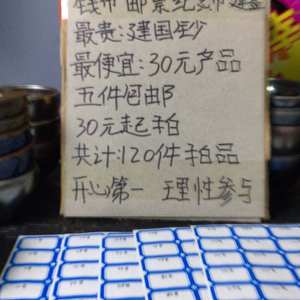 钱币 邮票纪
最贵:建国钞
最便宜:30元产品
五件包邮
30元起拍
共计:120件拍品
开心第一 理性参与